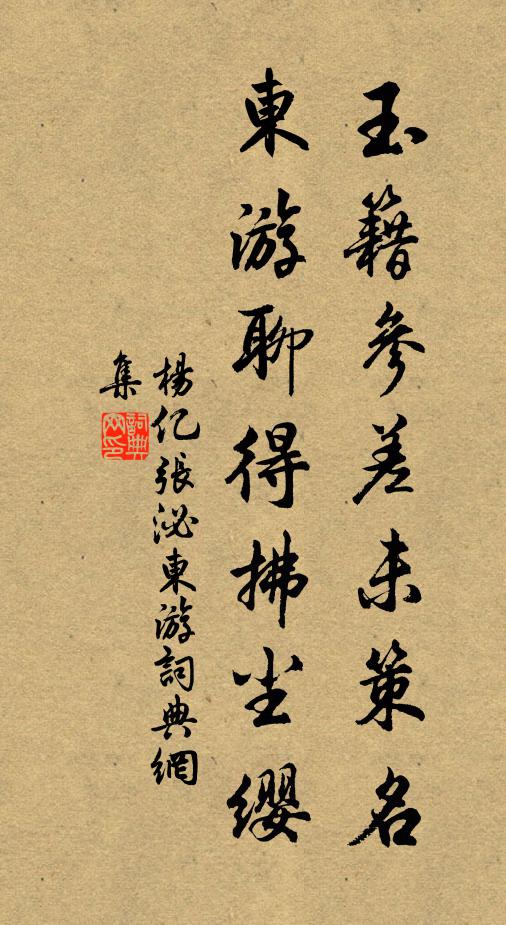 玉籍參差未策名
東游聊得拂尘纓
楊亿張泌東游詞典網
集
詞典网印